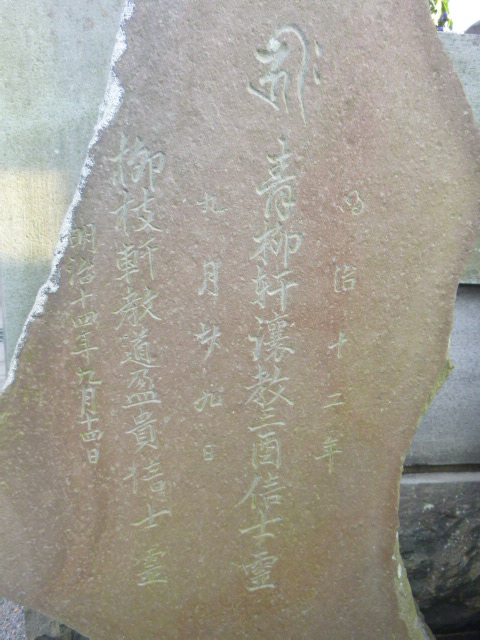 明治十二年
青柳軒瀼教三酉信士霊
九月廿九日
柳枝軒教道盈貴信士霊
明治十四年九月十四日